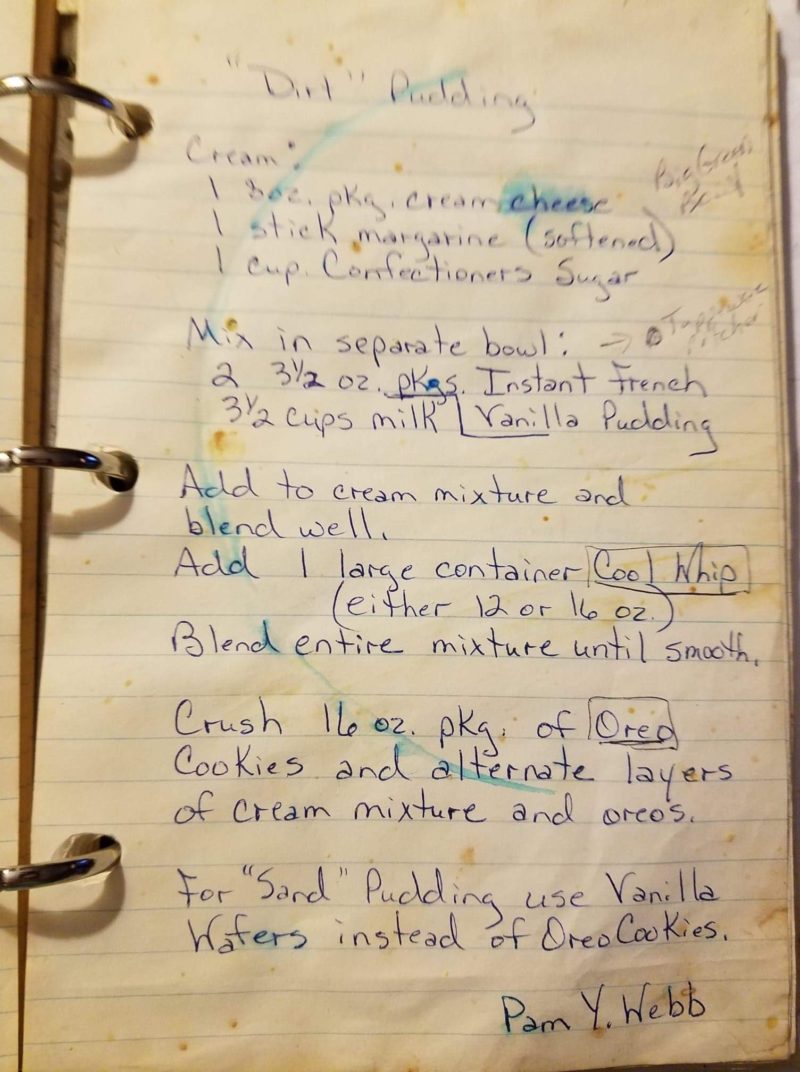 "Dirt" Pudding
Cream:
1 8oz. pkg. cream cheese
Big Green
1 stick margarine (softened)
1 cup Confectioners Sugar
Mix in separate bowl: →
2 3½ oz. pkgs. Instant French
3½ cups milk Vanilla Pudding
Add to cream mixture and
blend well.
Add 1 large container Cool Whip
(either 12 or 16 oz.)
Blend entire mixture until smooth.
Crush 16 oz. pkg. of Oreo
Cookies and alternate layers
of cream mixture and oreos.
For "Sand" Pudding use Vanilla
Wafers instead of Oreo Cookies.
Pam Y. Webb